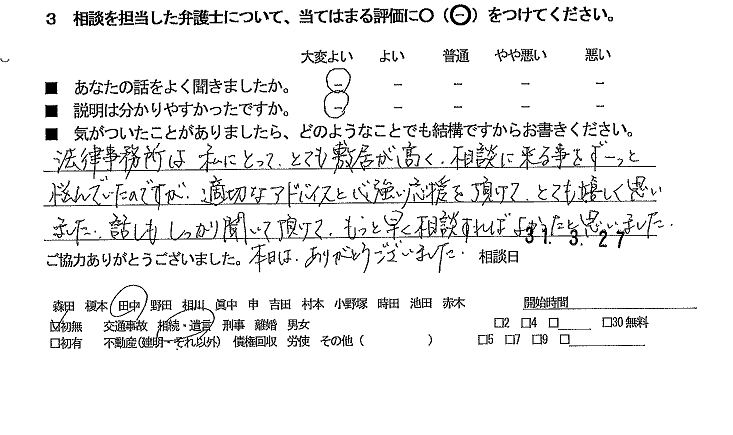 3 相談を担当した弁護士について、当てはまる評価に○（㊀）をつけてください。
大変よい よい 普通 やや悪い 悪い
■ あなたの話をよく聞きましたか。 － － － － －
■ 説明は分かりやすかったですか。 － － － － －
■ 気がついたことがありましたら、どのようなことでも結構ですからお書きください。
法律事務所は 私にとって、とても敷居が高く、相談に来る事をずーっと
悩んでいたのですが、適切なアドバイスと心強い応援を頂けて、とても嬉しく思い
ました。話しもしっかり聞いて頂けて、もっと早く相談すればよかったと思いました。
31. 3. 27
ご協力ありがとうございました。本日は、ありがとうございました。 相談日
森田 榎本 田中 野田 相川 眞中 申 吉田 村本 小野塚 時田 池田 赤木 開始時間
☑初無 交通事故 相続・遺言 刑事 離婚 男女 □2 □4 □ □30無料
□初有 不動産(建明・それ以外) 債権回収 労使 その他（ ） □5 □7 □9 □